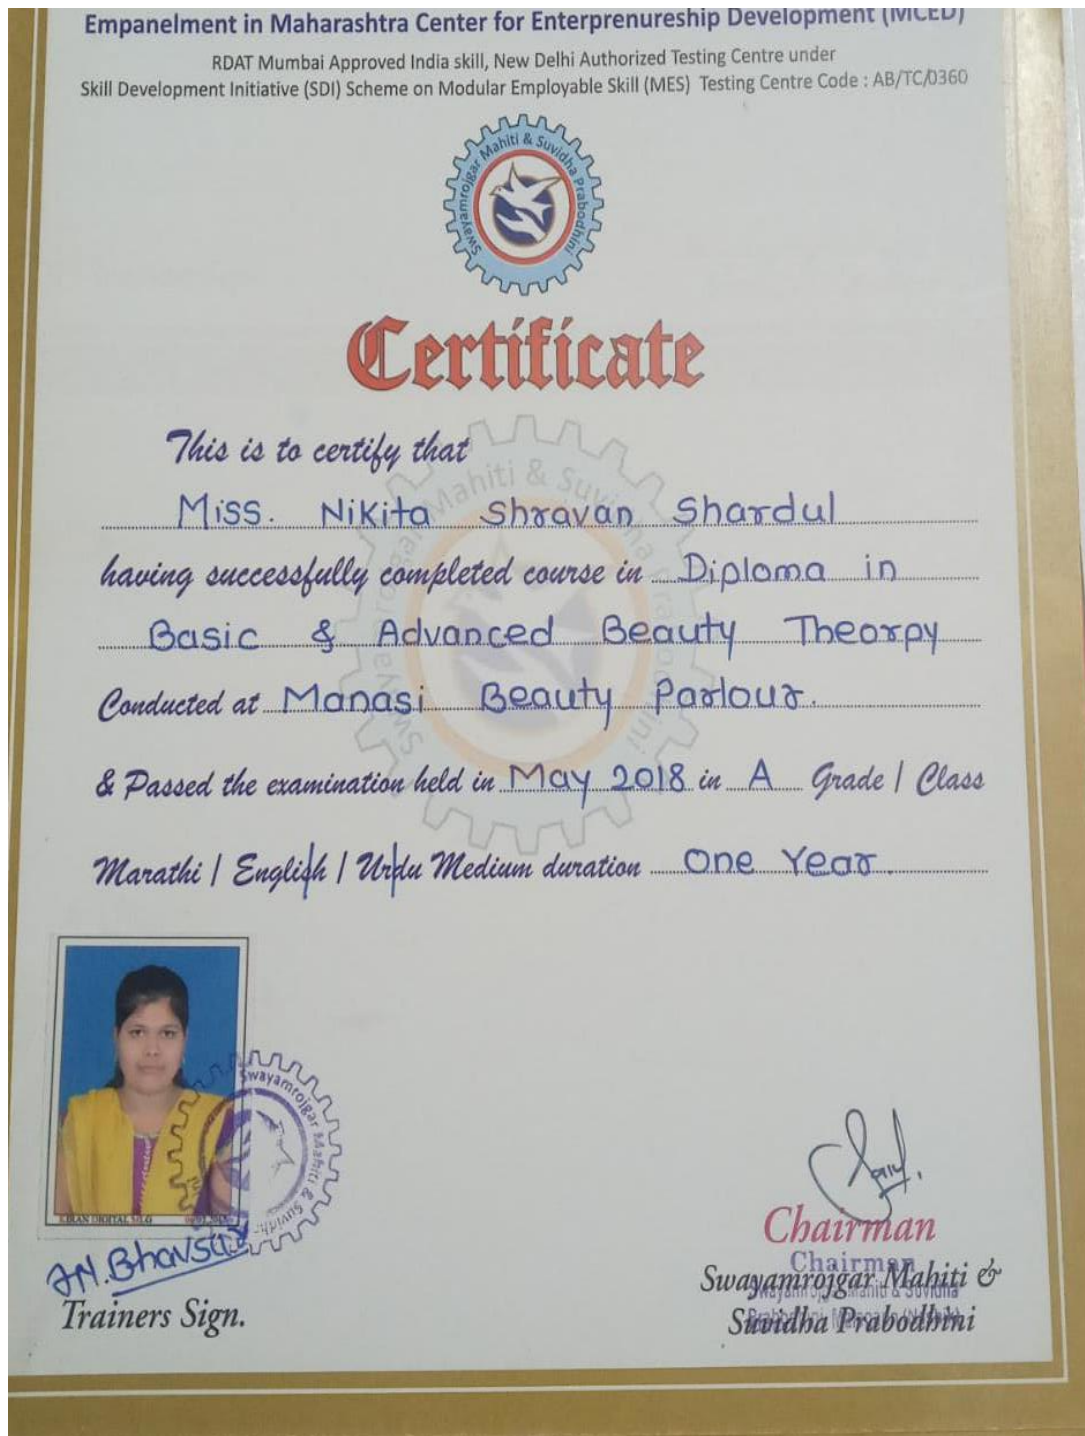 Empanelment in Maharashtra Center for Enterprenureship Development (MCED)
RDAT Mumbai Approved India skill, New Delhi Authorized Testing Centre under
Skill Development Initiative (SDI) Scheme on Modular Employable Skill (MES) Testing Centre Code : AB/TC/0360
Swayamrojgar Mahiti & Suvidha Prabodhini
Certificate
This is to certify that
Miss. Nikita Shravan Shardul
having successfully completed course in Diploma in
Basic & Advanced Beauty Theorpy
Conducted at Manasi Beauty Parlour.
& Passed the examination held in May 2018 in A Grade / Class
Marathi / English / Urdu Medium duration One Year.
Swayamrojgar Mahiti & Suvidh
KIRAN DIGITAL MLG
Bhavsar
Trainers Sign.
Chairman
Chairman
Swayamrojgar Mahiti &
Suvidha Prabodhini